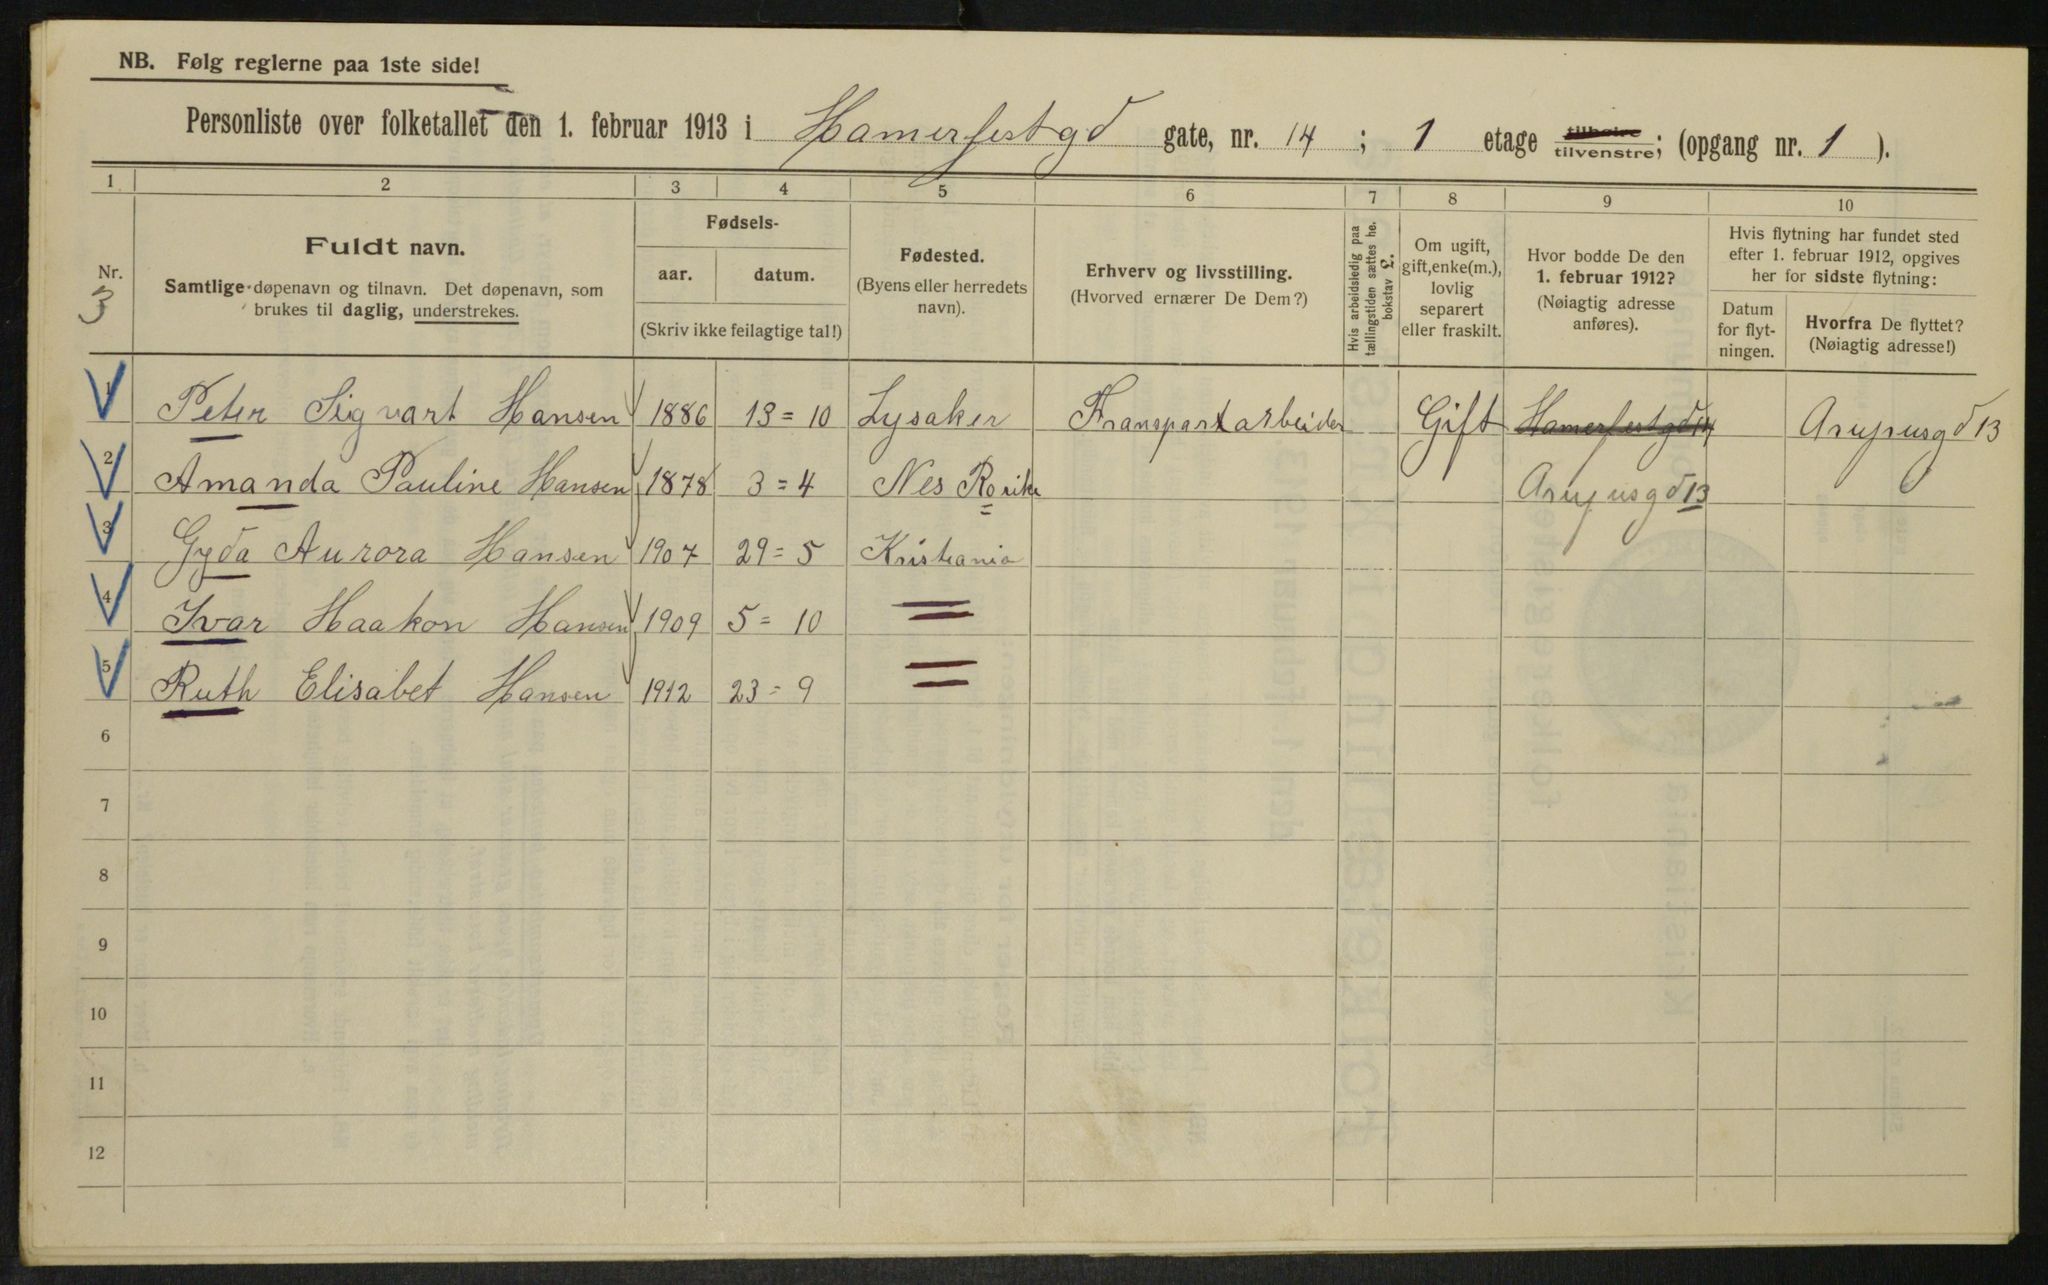 NB. Følg reglerne paa 1ste side!
Personliste over folketallet den 1. februar 1913 i Hamerfestgd gate, nr. 14 ; 1 etage tilhøire tilvenstre; (opgang nr. 1 ).
1 2 3 4 5 6 7 8 9 10
Nr.
3
Fuldt navn.
Samtlige døpenavn og tilnavn. Det døpenavn, som
brukes til daglig, understrekes.
Fødsels-
aar. datum.
(Skriv ikke feilagtige tal!)
Fødested.
(Byens eller herredets
navn).
Erhverv og livsstilling.
(Hvorved ernærer De Dem?)
Hvis arbeidsledig paa
tællingstiden sættes he.
bokstav £.
Om ugift,
gift,enke(m.),
lovlig
separert
eller fraskilt.
Hvor bodde De den
1. februar 1912?
(Nøiagtig adresse
anføres).
Hvis flytning har fundet sted
efter 1. februar 1912, opgives
her for sidste flytning:
Datum
for flyt-
ningen.
Hvorfra De flyttet?
(Nøiagtig adresse!)
1 Peter Sigvart Hansen 1886 13=10 Lysaker Transpartarbeider Gift Hamerfestgd 14 Arupusgd 13
2 Amanda Pauline Hansen 1878 3=4 Nes Rorike Arupusgd 13
3 Gyda Aurora Hansen 1907 29=5 Kristiania
4 Ivar Haakon Hansen 1909 5=10
5 Ruth Elisabet Hansen 1912 23=9
6
7
8
9
10
11
12